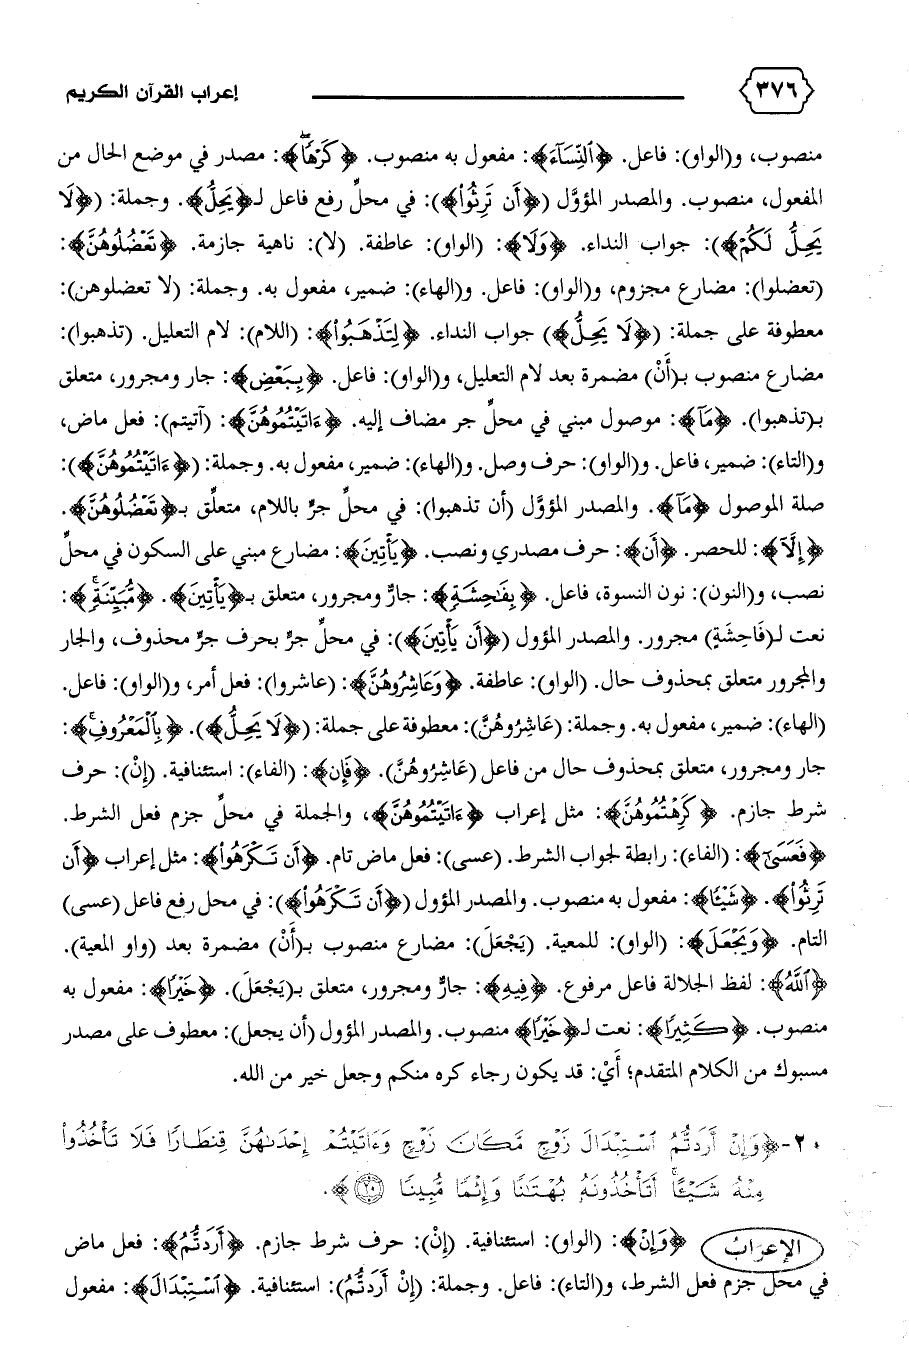 ٣٧٦ إعراب القرآن الكريم
منصوب، و(الواو): فاعل. ﴿ٱلنِّسَآءَ﴾: مفعول به منصوب. ﴿كَرْهًا﴾: مصدر في موضع الحال من
المفعول، منصوب. والمصدر المؤوَّل (﴿أَن تَرِثُوا۟﴾): في محلِّ رفع فاعل لـ﴿يَحِلُّ﴾. وجملة: (﴿لَا
يَحِلُّ لَكُمْ﴾): جواب النداء. ﴿وَلَا﴾: (الواو): عاطفة. (لا): ناهية جازمة. ﴿تَعْضُلُوهُنَّ﴾:
(تعضلوا): مضارع مجزوم، و(الواو): فاعل. و(الهاء): ضمير، مفعول به. وجملة: (لا تعضلوهن):
معطوفة على جملة: (﴿لَا يَحِلُّ﴾) جواب النداء. ﴿لِتَذْهَبُوا۟﴾: (اللام): لام التعليل. (تذهبوا):
مضارع منصوب بـ(أَنْ) مضمرة بعد لام التعليل، و(الواو): فاعل. ﴿بِبَعْضِ﴾: جار ومجرور، متعلق
بـ(تذهبوا). ﴿مَآ﴾: موصول مبني في محلِّ جر مضاف إليه. ﴿ءَاتَيْتُمُوهُنَّ﴾: (آتيتم): فعل ماض،
و(التاء): ضمير، فاعل. و(الواو): حرف وصل. و(الهاء): ضمير، مفعول به. وجملة: (﴿ءَاتَيْتُمُوهُنَّ﴾):
صلة الموصول ﴿مَآ﴾. والمصدر المؤوَّل (أن تذهبوا): في محلِّ جرٍّ باللام، متعلِّق بـ﴿تَعْضُلُوهُنَّ﴾.
﴿إِلَّآ﴾: للحصر. ﴿أَن﴾: حرف مصدري ونصب. ﴿يَأْتِينَ﴾: مضارع مبني على السكون في محلِّ
نصب، و(النون): نون النسوة، فاعل. ﴿بِفَٰحِشَةٍ﴾: جارٌّ ومجرور، متعلق بـ﴿يَأْتِينَ﴾. ﴿مُّبَيِّنَةٍ﴾:
نعت لـ(فَاحِشَةٍ) مجرور. والمصدر المؤول (﴿أَن يَأْتِينَ﴾): في محلِّ جرٍّ بحرف جرٍّ محذوف، والجار
والمجرور متعلق بمحذوف حال. (الواو): عاطفة. ﴿وَعَاشِرُوهُنَّ﴾: (عاشروا): فعل أمر، و(الواو): فاعل.
(الهاء): ضمير، مفعول به. وجملة: (عَاشِرُوهُنَّ): معطوفة على جملة: (﴿لَا يَحِلُّ﴾). ﴿بِٱلْمَعْرُوفِ﴾:
جار ومجرور، متعلق بمحذوف حال من فاعل (عَاشِرُوهُنَّ). ﴿فَإِن﴾: (الفاء): استئنافية. (إِنْ): حرف
شرط جازم. ﴿كَرِهْتُمُوهُنَّ﴾: مثل إعراب ﴿ءَاتَيْتُمُوهُنَّ﴾، والجملة في محلِّ جزم فعل الشرط.
﴿فَعَسَىٰٓ﴾: (الفاء): رابطة لجواب الشرط. (عسى): فعل ماض تام. ﴿أَن تَكْرَهُوا۟﴾: مثل إعراب ﴿أَن
تَرِثُوا۟﴾. ﴿شَيْـًٔا﴾: مفعول به منصوب. والمصدر المؤول (﴿أَن تَكْرَهُوا۟﴾): في محل رفع فاعل (عسى)
التام. ﴿وَيَجْعَلَ﴾: (الواو): للمعية. (يَجْعَلَ): مضارع منصوب بـ(أَنْ) مضمرة بعد (واو المعية).
﴿ٱللَّهُ﴾: لفظ الجلالة فاعل مرفوع. ﴿فِيهِ﴾: جارٌّ ومجرور، متعلق بـ(يَجْعَلَ). ﴿خَيْرًا﴾: مفعول به
منصوب. ﴿كَثِيرًا﴾: نعت لـ﴿خَيْرًا﴾ منصوب. والمصدر المؤول (أن يجعل): معطوف على مصدر
مسبوك من الكلام المتقدم؛ أَيْ: قد يكون رجاء كره منكم وجعل خير من الله.
٢٠-﴿وَإِنْ أَرَدتُّمُ ٱسْتِبْدَالَ زَوْجٍ مَّكَانَ زَوْجٍ وَءَاتَيْتُمْ إِحْدَىٰهُنَّ قِنطَارًا فَلَا تَأْخُذُوا۟
مِنْهُ شَيْـًٔا أَتَأْخُذُونَهُۥ بُهْتَٰنًا وَإِثْمًا مُّبِينًا ۝٢٠﴾.
الإعرَابُ ﴿وَإِنْ﴾: (الواو): استئنافية. (إِن): حرف شرط جازم. ﴿أَرَدتُّمُ﴾: فعل ماض
في محلِّ جزم فعل الشرط، و(التاء): فاعل. وجملة: (إِنْ أَرَدتُّمُ): استئنافية. ﴿ٱسْتِبْدَالَ﴾: مفعول